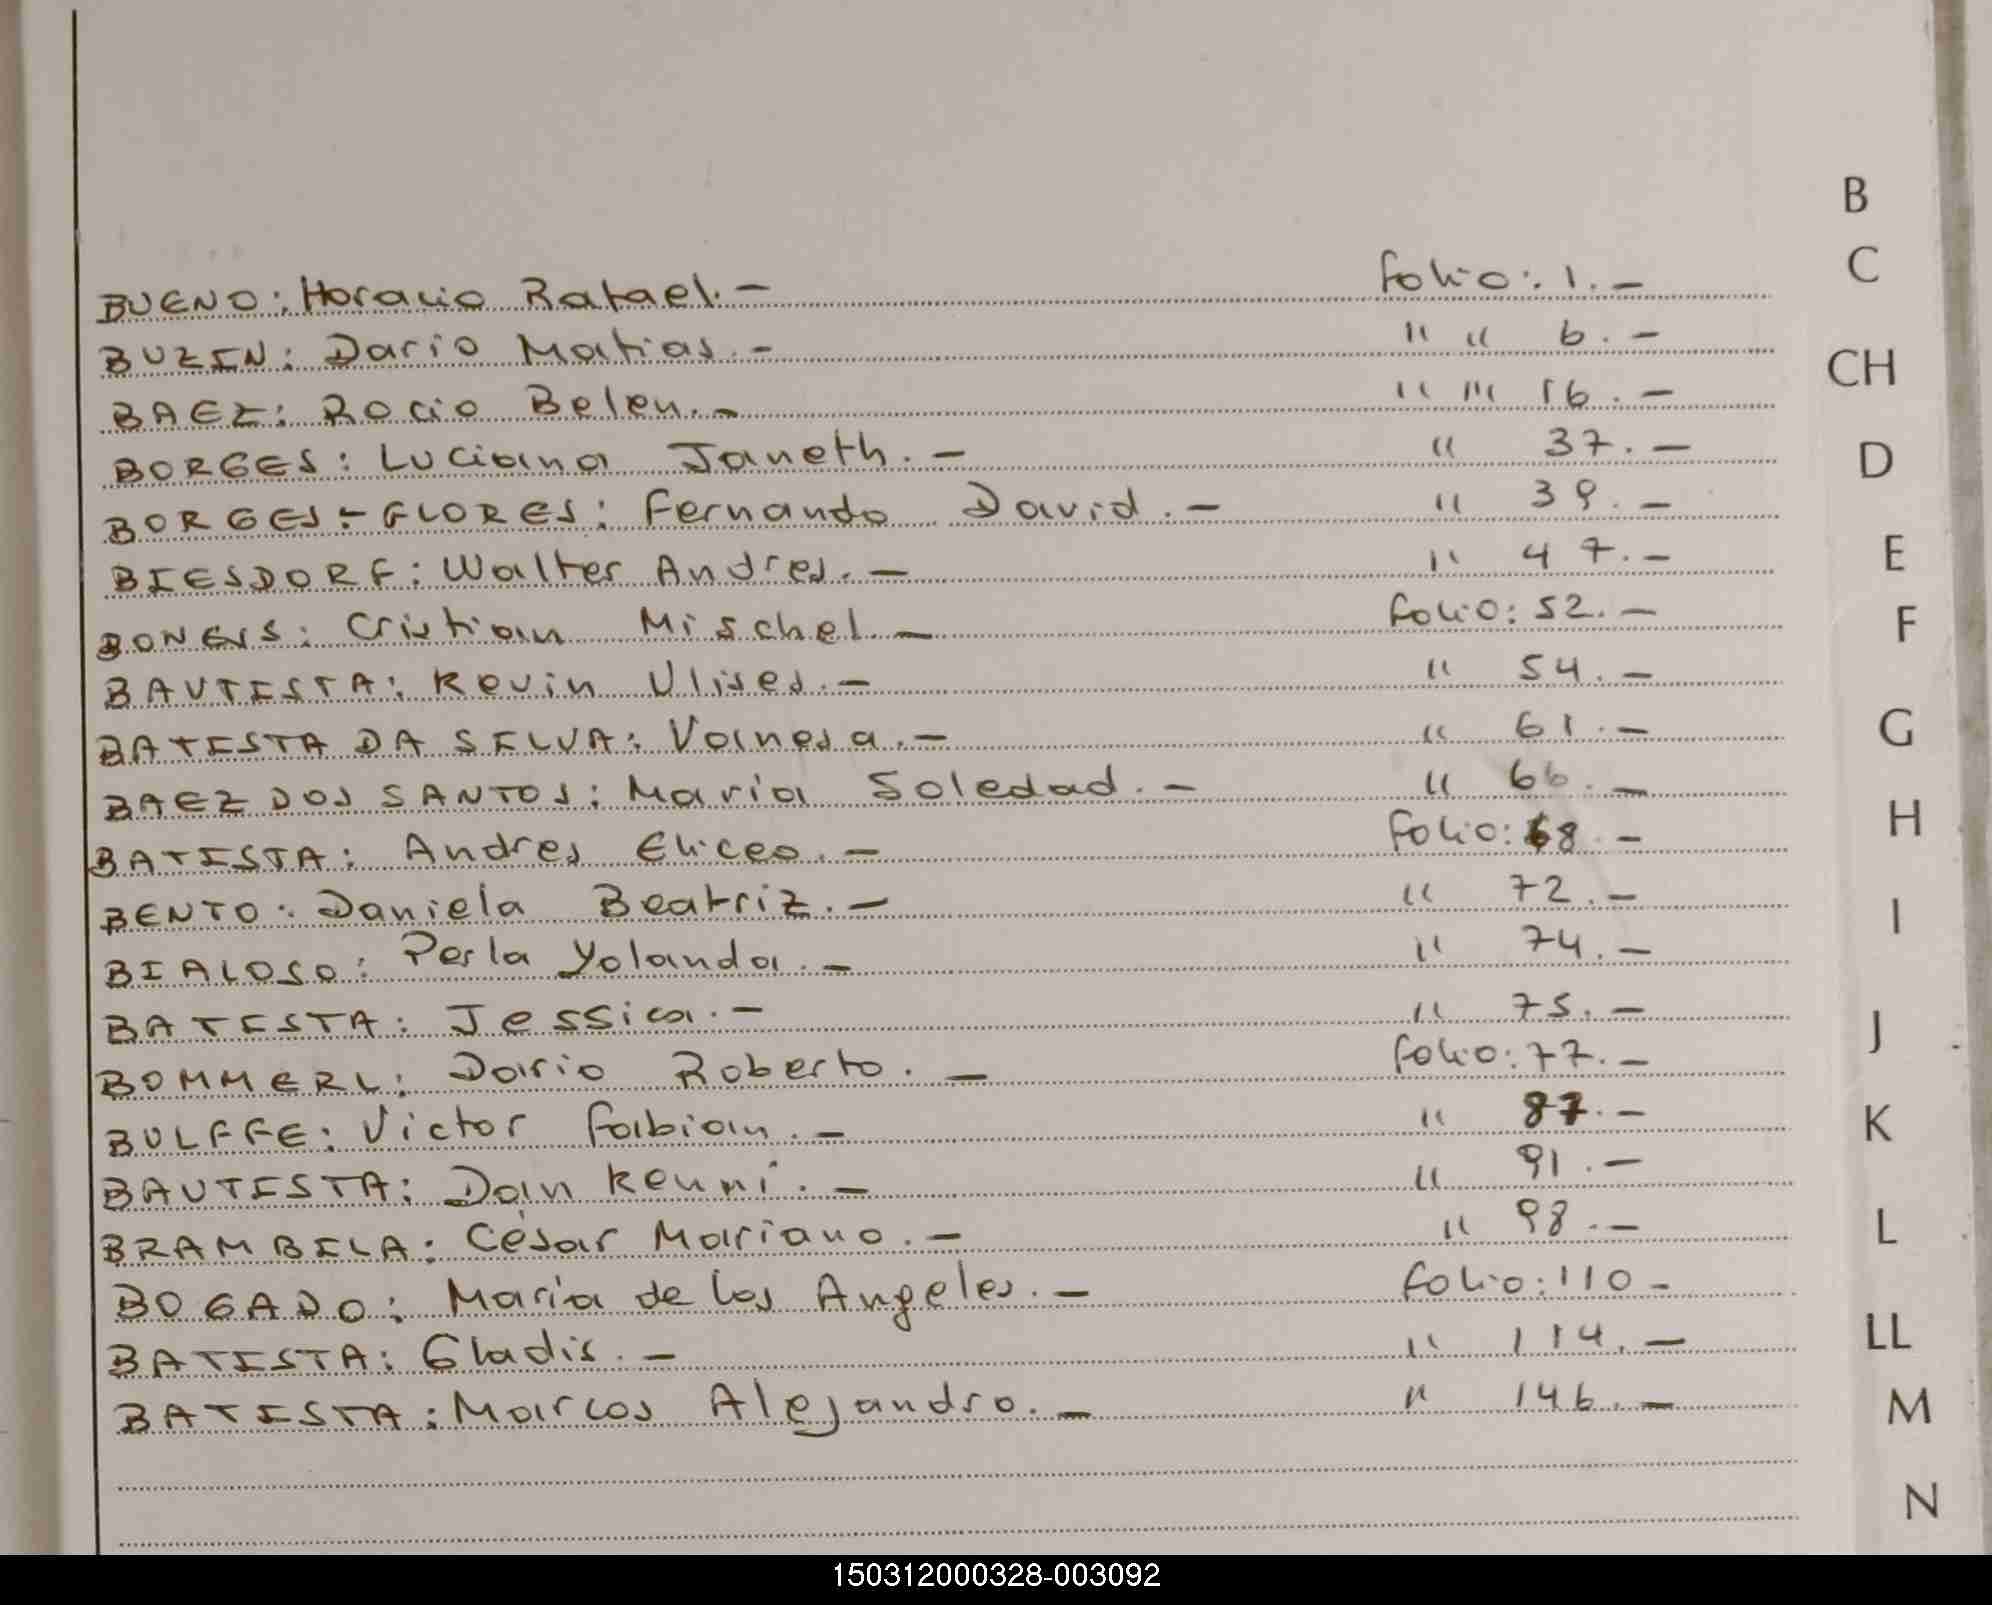 B
BUENO: Horacio Rafael.- folio: 1.-
C
BUZIN: Dario Matias.- " " 6.-
CH
BAEZ: Rocio Belen.- " "' 16.-
BORGES: Luciana Janeth.- " 37.-
D
BORGES-FLORES: Fernando David.- " 39.-
E
BIESDORF: Walter Andres.- " 47.-
Cristian Mischel.- folio: 52.-
F
BAUTISTA: Kevin Ulises.- " 54.-
G
BATISTA DA SILVA: Vanesa.- " 61.-
BAEZ DOS SANTOS: Maria Soledad.- " 66.-
H
BATISTA: Andres Eliceo.- folio: 68.-
BENTO: Daniela Beatriz.- " 72.-
I
BIALOSO: Perla Yolanda.- " 74.-
BATISTA: Jessica.- " 75.-
J
BOMMERL: Dario Roberto.- folio: 77.-
K
BULFFE: Victor Fabian.- " 87.-
BAUTISTA: Dan Kenni.- " 91.-
L
BRAMBILA: César Mariano.- " 98.-
BOGADO: Maria de los Angeles.- folio: 110-
LL
BATISTA: Gladis.- " 114.-
M
BATISTA: Marcos Alejandro.- " 146.-
N
150312000328-003092